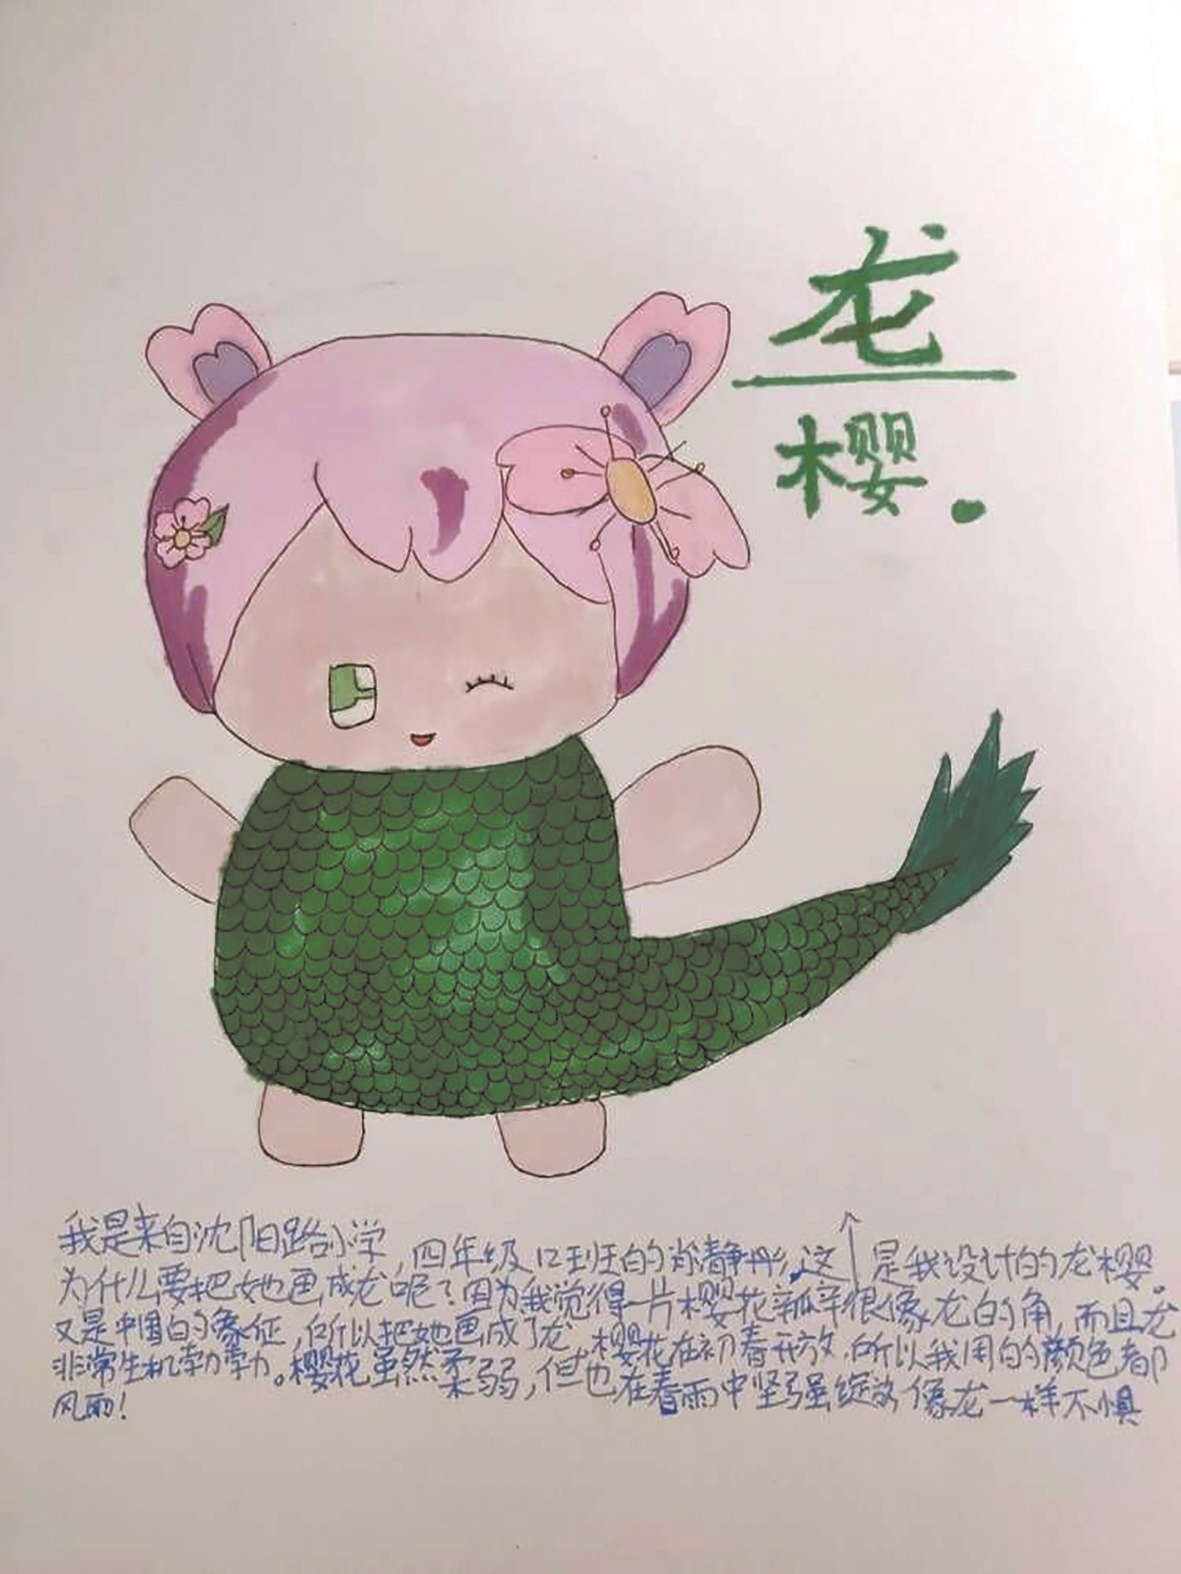 龙
樱.
我是来自沈阳路小学,四年级12班的肖静彤,这↑是我设计的龙樱。
为什么要把她画成龙呢?因为我觉得一片樱花瓣很像龙的角,而且龙
又是中国的象征,所以把她画成了龙,樱花在初春开放,所以我用的颜色都
非常生机勃勃。樱花虽然柔弱,但也在春雨中坚强绽放像龙一样不惧
风雨!